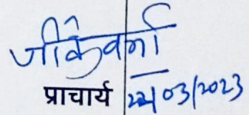 जीकेवर्मा
प्राचार्य 22/03/2023